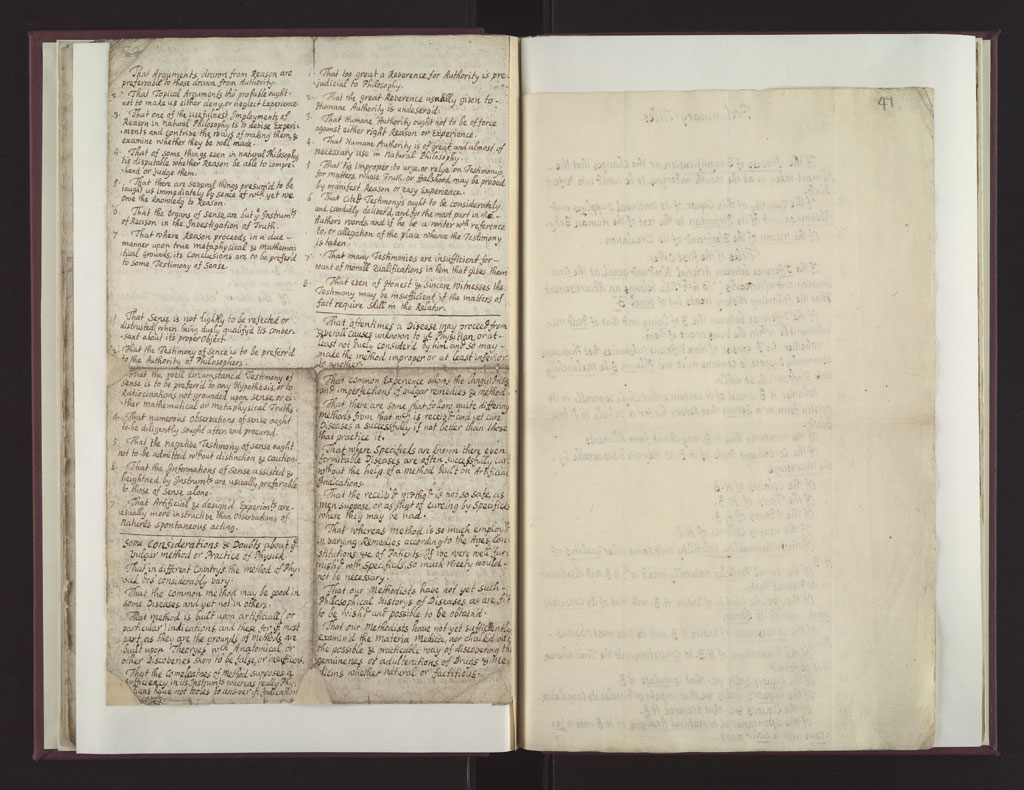 That Arguments drawn from Reason are
preferrable to those drawn from Authority.
2. That Topical Arguments tho probable ought
not to make us either deny, or neglect Experience
3. That one of the usefulnest Imployments of
Reason in Natural Philosophy is to devise Experi-
ments and contrive the ways of making them, &
examine whether they be well made.
4. That of some things even in natural Philosophy
tis disputable whether Reason be able to compre-
hend or Judge them.
That there are severall things presum'd to be
taught us immediately by sence of wch yet we
owe the knowledg to Reason.
6. That the Organs of Sense, are but ye Instrumts
of Reason in the Investigation of Truth.
7. That where Reason proceeds in a due
manner upon true metaphysical & Mathema-
tical grounds, its Conclusions are to be prefer'd
to some Testimony of Sense.
1. That Sense is not lightly to be rejected or
distrusted when being duely qualifyd tis conver-
sant about its proper Object.
2. That the Testimony of Sence is to be preferr'd
to the Authority of Philosophers.
That the well circumstanc'd Testimony of
Sense is to be prefer'd to any Hypothesis, or to
Ratiocinations not grounded upon Sense, or ei-
ther mathematical or Metaphysical Truths.
4. That numerous Observations of sense ought
to be diligently sought after and procured.
5. That the negative Testimony of sense ought
not to be admitted without distinction & caution.
6. That the Informations of Sense assisted &
heightned by Instrumts are usually preferable
to those of Sense alone.
7. That Artificial & design'd Experimts are
usually more instructive than Observations of
Natures spontaneous acting.
Some Considerations & Doubts about ye
vulgar method or Practice of Physick
That in different Countrys the method of Phy
sick dos considerably vary.
That the Common method may be good in
some Diseases and yet not in others.
That method is built upon artificiall or
particular Indications, and these for ye most
part as they are the grounds of methods are
built upon Theoryes wch Anatomical or
other Discoveries show to be false, or insufficient.
That the Compleatnes of Method supposes a
sufficiency in its Instrumts whereas really Phy
sitians have not tooles to answer ye Indication
1. That too great a Reverence for Authority is pre
judicial to Philosophy.
2. That the great Reverence usually given to
Humane Authority is undeserv'd.
3. That Humane Authority ought not to be of force
against either right Reason or Experience.
4. That Humane Authority is of great and almost of
necessary use in Natural Philosophy.
5 That tis Improper to urge or relye on Testimonys
for matters, whose Truth, or falshood may be proved
by manifest Reason or easy Experience.
6 That cited Testimonys ought to be considerately
and candidly deliver'd, and for the most part in the
Authors words, and if he be a writer wth reference
to, or allegation of the place whence the Testimony
is taken.
7. That many Testimonies are insufficient for
want of morall Qualifications in him that gives them
8. That even of Honest & Sincere Witnesses the
Testimony may be insufficient if the matters of
fact require skill in the Relator.
That oftentimes a Disease may proceed from
several Causes unknown to ye Physitian, or at
least not duely consider'd by him and so may
make the method improper or at least inferior
to another.
That common Experience shows the Languidness
and imperfections of vulgar remedies & method.
That there are some that follow quite differing
methods from that wch is receiv'd and yet cure
Diseases as successfully if not better than those
that practice it.
That where Specificks are known there even
formidable Diseases are often Successfully cur'd
without the help of a method built on Artificial
Indications
That the receiv'd method is not so safe as
men suppose, or as that of cureing by Specificks
where they may be had.
That whereas method is so much employ'd
in varying Remedies according to the Ages, Con
stitutions &c. of Patients: If we were well fur
nish'd with Specificks, so much nicety would
not be necessary.
That our Methodists have not yet such
Philosophical Historys of Diseases as are fit
to be wish'd and possible to be obtain'd.
That our Methodists have not yet sufficiently
examin'd the Materia Medica, nor
the possible & practicable way of discovering the
genuinenes or adulterations of Drugs & Me-
dicins whether natural or factitious.
41